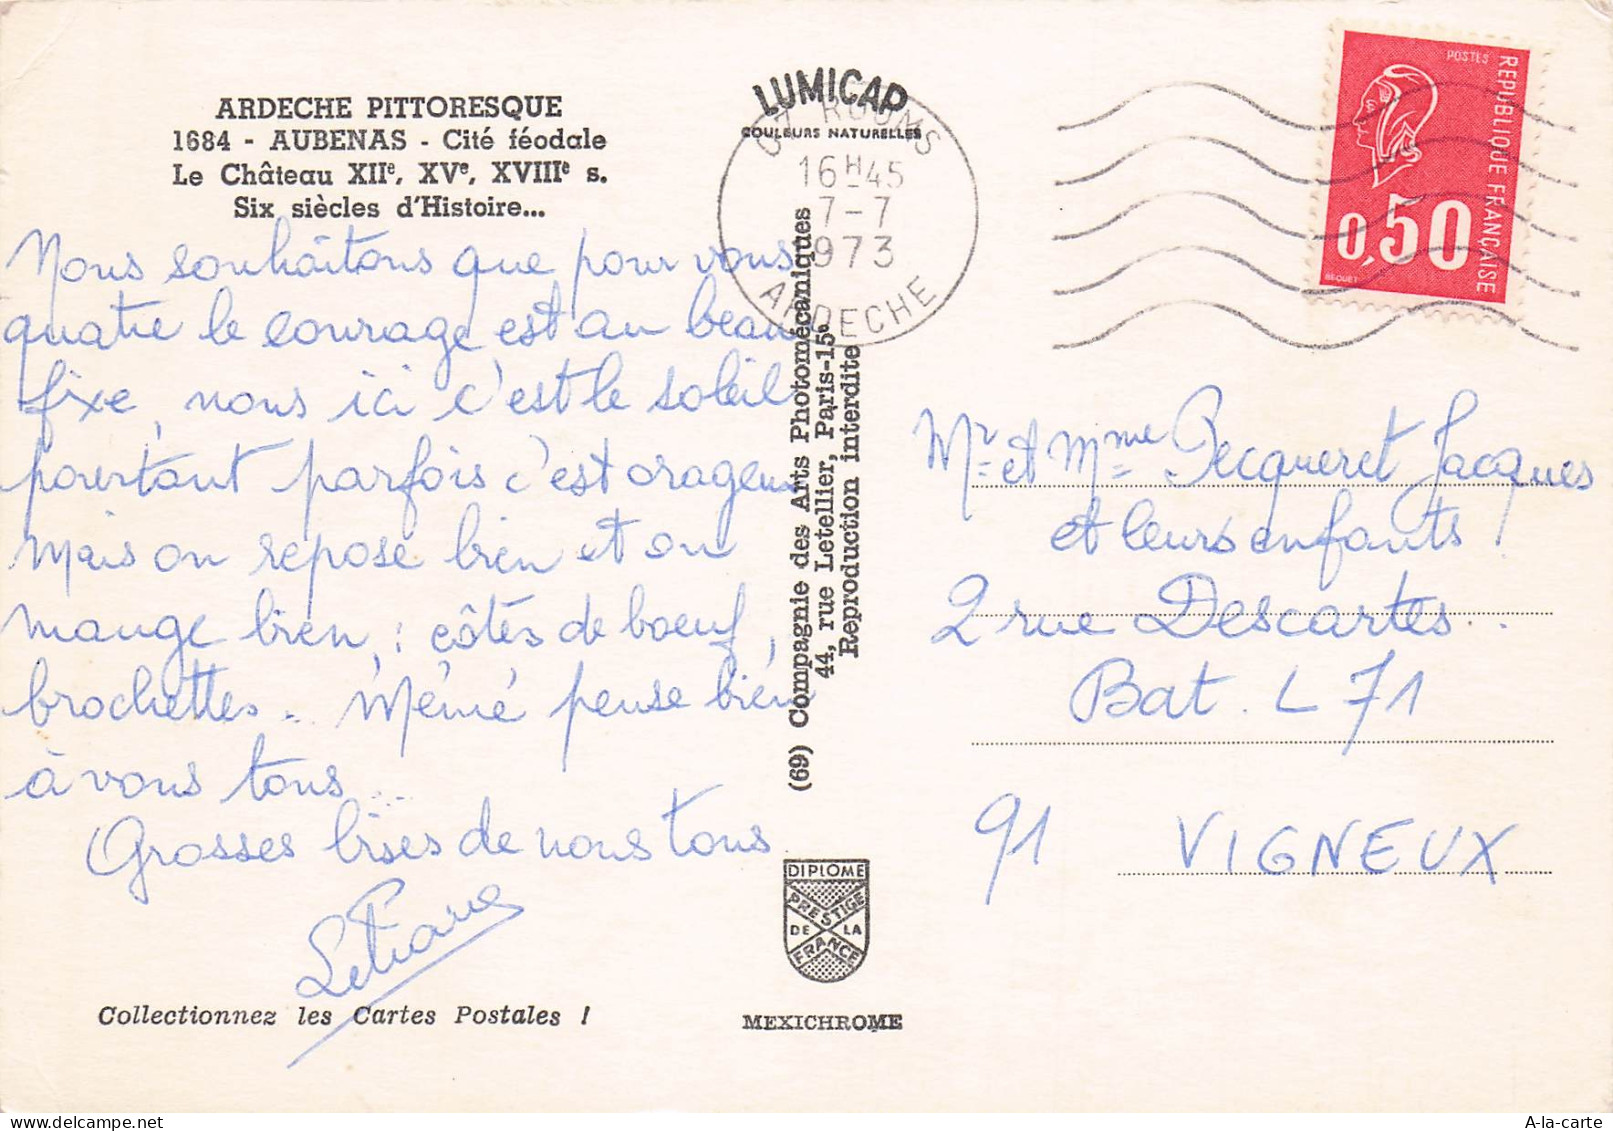 ARDECHE PITTORESQUE
1684 - AUBENAS - Cité féodale
Le Château XIIe, XVe, XVIIIe s.
Six siècles d'Histoire...
Nous souhaitons que pour vous
quatre le courage est au beau
fixe, nous ici c'est le soleil
pourtant parfois c'est orageux
mais on repose bien et on
mange bien : côtes de boeuf,
brochettes.. Mémé pense bien
à vous tous...
Grosses bises de nous tous
Collectionnez les Cartes Postales !
LUMICAP
COULEURS NATURELLES
07 RUOMS
16H45
7-7
1973
ARDECHE
(69) Compagnie des Arts Photomécaniques
44, rue Letellier, Paris-15e
Reproduction interdite
DIPLOME
PRESTIGE
DE LA
FRANCE
MEXICHROME
POSTES
REPUBLIQUE FRANÇAISE
0,50
BEQUET
Mr et Mme Pecqueret Jacques
et leurs enfants !
2 rue Descartes.
Bat. L 71
91 VIGNEUX
A-la-carte